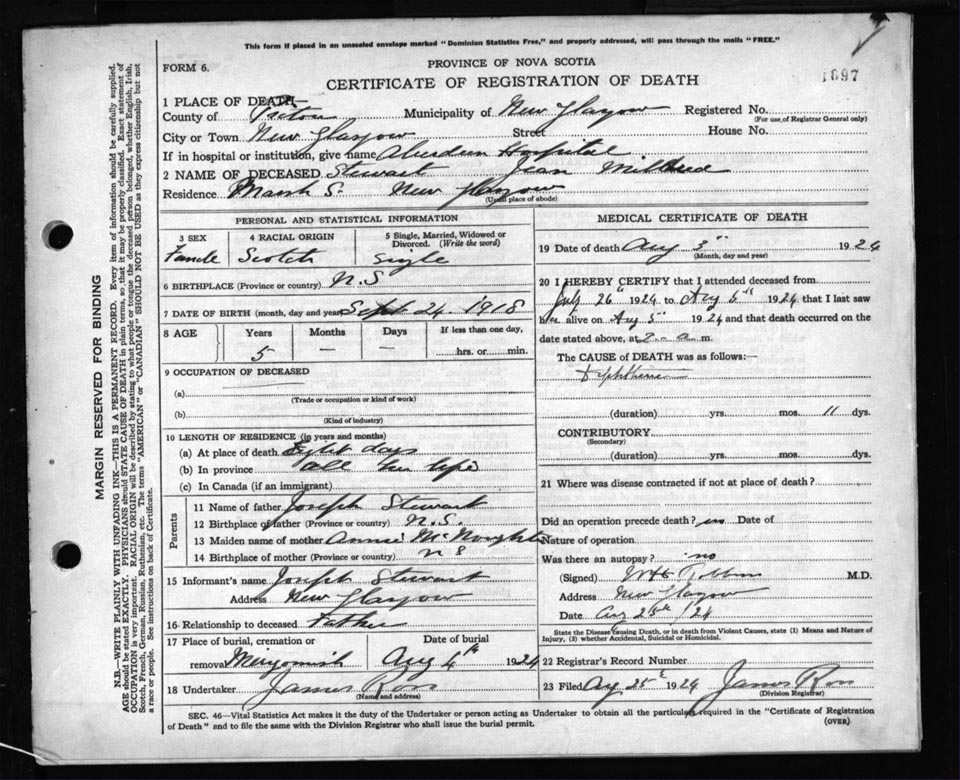 This form if placed in an unsealed envelope marked "Dominion Statistics Free," and properly addressed, will pass through the mails "FREE."
FORM 6.
PROVINCE OF NOVA SCOTIA
1697
CERTIFICATE OF REGISTRATION OF DEATH
1 PLACE OF DEATH—
County of Pictou Municipality of New Glasgow Registered No.
(For use of Registrar General only)
City or Town New Glasgow Street House No.
If in hospital or institution, give name Aberdeen Hospital
2 NAME OF DECEASED Stewart Jean Mildred
Residence Marsh S. New Glasgow
(Usual place of abode)
PERSONAL AND STATISTICAL INFORMATION
3 SEX 4 RACIAL ORIGIN 5 Single, Married, Widowed or Divorced. (Write the word)
Female Scotch Single
6 BIRTHPLACE (Province or country) N.S
7 DATE OF BIRTH (month, day and year) Sept 24. 1918
8 AGE Years Months Days If less than one day,
5 — — hrs. or min.
9 OCCUPATION OF DECEASED
(a)
(Trade or occupation or kind of work)
(b)
(Kind of industry)
10 LENGTH OF RESIDENCE (in years and months)
(a) At place of death Eight days
(b) In province all her life
(c) In Canada (if an immigrant)
Parents
11 Name of father Joseph Stewart
12 Birthplace of father (Province or country) N.S.
13 Maiden name of mother Annie
14 Birthplace of mother (Province or country) N S
15 Informant's name Joseph Stewart
Address New Glasgow
16 Relationship to deceased Father
17 Place of burial, cremation or removal Date of burial
Aug 4th 1924
18 Undertaker James Ross
(Name and address)
MEDICAL CERTIFICATE OF DEATH
19 Date of death Aug 3" 1924
(Month, day and year)
20 I HEREBY CERTIFY that I attended deceased from
July 26th 1924 to Aug 1924 that I last saw
her alive on Aug 1924 and that death occurred on
date stated above, at a m.
The CAUSE of DEATH was as follows:—
Diphtheria
(duration) yrs. mos. 11 dys.
CONTRIBUTORY
(Secondary)
(duration) yrs. mos. dys.
21 Where was disease contracted if not at place of death?
Did an operation precede death? Date of
Nature of operation
Was there an autopsy? no
(Signed) Robbins M.D.
Address New Glasgow
Date Aug 25th /24
State the Disease Causing Death, or in death from Violent Causes, state (1) Means and Nature of Injury, (2) whether Accidental, Suicidal or Homicidal.
22 Registrar's Record Number
23 Filed Aug 25th 1924 James Ross
(Division Registrar)
SEC. 46—Vital Statistics Act makes it the duty of the Undertaker or person acting as Undertaker to obtain all the particulars required in the "Certificate of Registration
of Death" and to file the same with the Division Registrar who shall issue the burial permit.
(OVER)
MARGIN RESERVED FOR BINDING
N.B.—WRITE PLAINLY WITH UNFADING INK—THIS IS A PERMANENT RECORD. Every item of information should be carefully supplied.
AGE should be stated EXACTLY. PHYSICIANS should STATE CAUSE OF DEATH in plain terms, so that it may be properly classified. Exact statement of
OCCUPATION is very important. RACIAL ORIGIN will be described by stating to what people or tongue the deceased person belonged, whether English, Irish,
Scotch, French, German, Russian, Ruthenian, etc. The terms "AMERICAN" or "CANADIAN" SHOULD NOT BE USED as they express citizenship but not
a race or people. See instructions on back of Certificate.